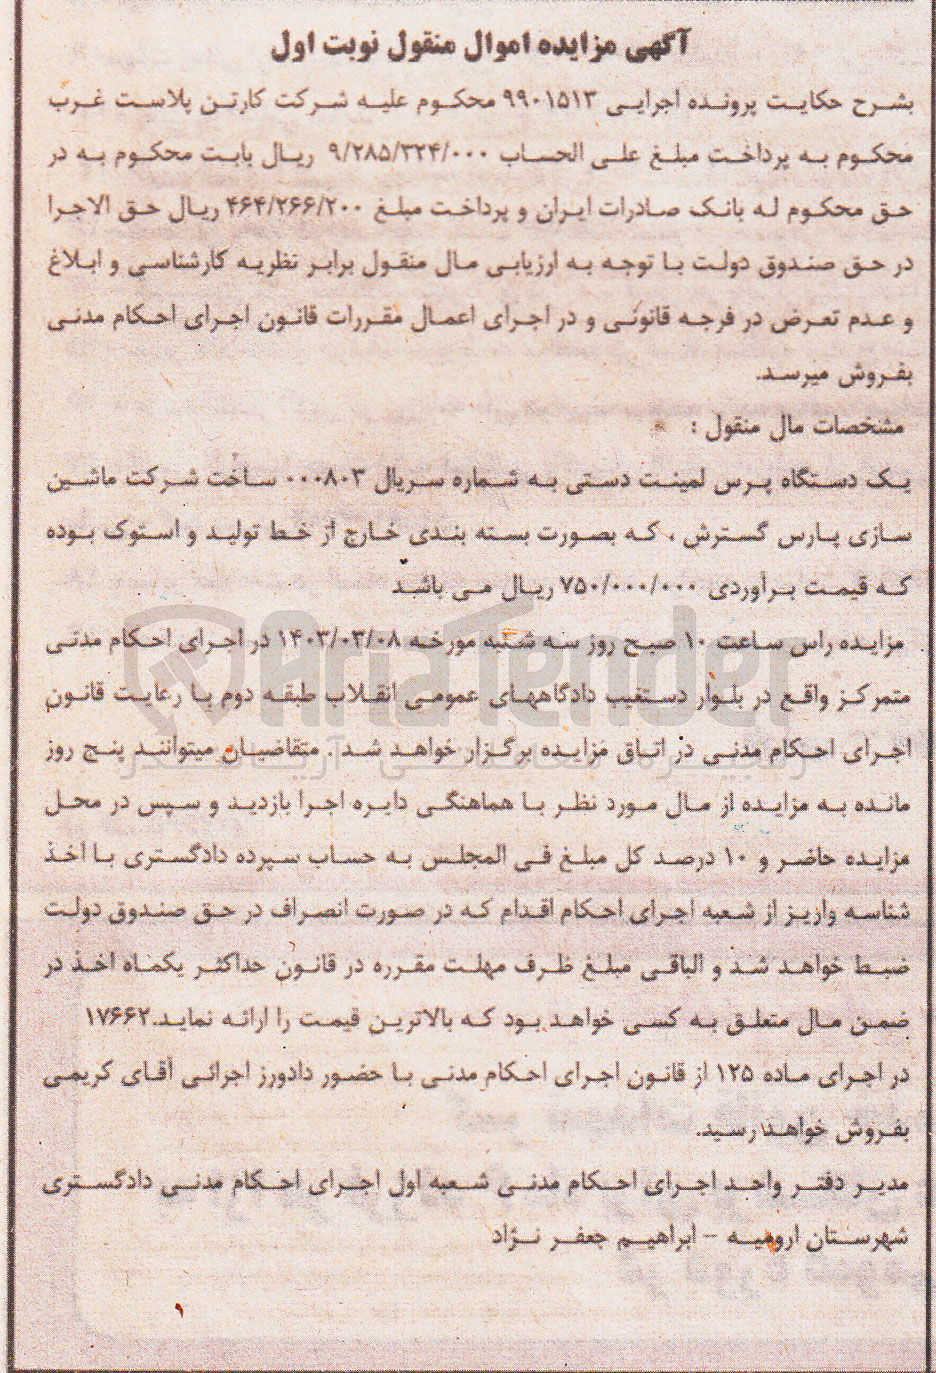 آگهی مزایده اموال منقول نوبت اول
بشرح حکایت پرونده اجرایی ۹۹۰۱۵۱۳ محکوم علیه شرکت کارتن پلاست غرب
محکوم به پرداخت مبلغ علی الحساب ۹/۲۸۵/۳۲۴/۰۰۰ ریال بابت محکوم به در
حق محکوم له بانک صادرات ایران و پرداخت مبلغ ۴۶۴/۲۶۶/۲۰۰ ریال حق الاجرا
در حق صندوق دولت با توجه به ارزیابی مال منقول برابر نظریه کارشناسی و ابلاغ
و عدم تعرض در فرجه قانونی و در اجرای اعمال مقررات قانون اجرای احکام مدنی
بفروش میرسد.
مشخصات مال منقول :
یک دستگاه پرس لمینت دستی به شماره سریال ۰۰۰۸۰۳ ساخت شرکت ماشین
سازی پارس گسترش ، که بصورت بسته بندی خارج از خط تولید و استوک بوده
که قیمت برآوردی ۷۵۰/۰۰۰/۰۰۰ ریال می باشد
مزایده راس ساعت ۱۰ صبح روز سه شنبه مورخه ۱۴۰۳/۰۳/۰۸ در اجرای احکام مدنی
متمرکز واقع در بلوار دستغیب دادگاههای عمومی انقلاب طبقه دوم با رعایت قانون
اجرای احکام مدنی در اتاق مزایده برگزار خواهد شد. متقاضیان میتوانند پنج روز
مانده به مزایده از مال مورد نظر با هماهنگی دایره اجرا بازدید و سپس در محل
مزایده حاضر و ۱۰ درصد کل مبلغ فی المجلس به حساب سپرده دادگستری با اخذ
شناسه واریز از شعبه اجرای احکام اقدام که در صورت انصراف در حق صندوق دولت
ضبط خواهد شد و الباقی مبلغ ظرف مهلت مقرره در قانون حداکثر یکماه اخذ در
ضمن مال متعلق به کسی خواهد بود که بالاترین قیمت را ارائه نماید.۱۷۶۶۲
در اجرای ماده ۱۲۵ از قانون اجرای احکام مدنی با حضور دادورز اجرائی آقای کریمی
بفروش خواهد رسید.
مدیر دفتر واحد اجرای احکام مدنی شعبه اول اجرای احکام مدنی دادگستری
شهرستان ارومیه - ابراهیم جعفر نژاد
AriaTender